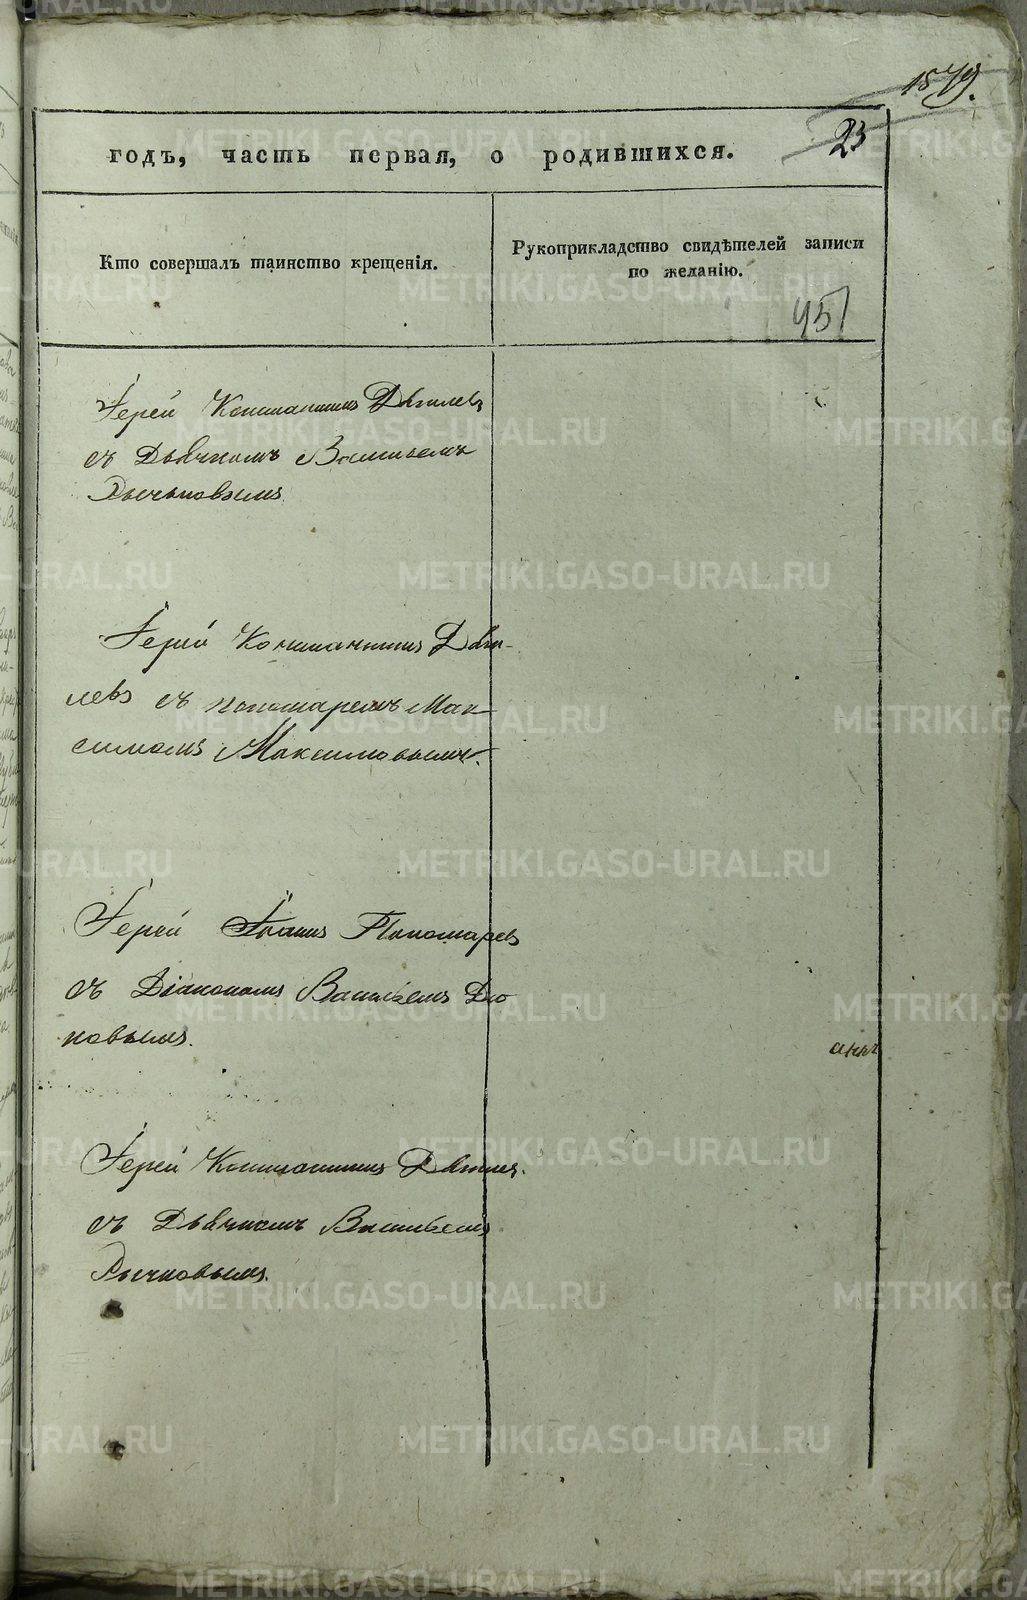 1579.
23
годъ, часть первая, о родившихся.
Кто совершалъ таинство крещенія.
Рукоприкладство свидѣтелей записи
по желанію.
451
Іерей Константинъ
съ Дьячкомъ Васильемъ
Рычьковымъ
Іерей Константинъ
съ пономаремъ Мак-
симомъ Максимовымъ.
Іерей Іоаннъ Пономаревъ
съ Діакономъ Васильемъ
ковымъ.
Іерей Константинъ
съ Дьячкомъ Васильемъ
Рычковымъ.
METRIKI.GASO-URAL.RU